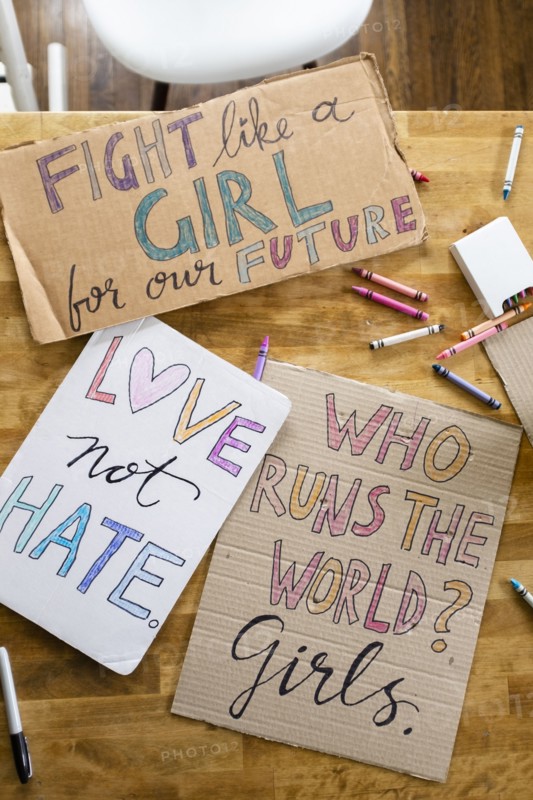 FIGHT like a
GIRL
for our FUTURE
LOVE
not
HATE.
WHO
RUNS THE
WORLD?
Girls.
PHOTO12